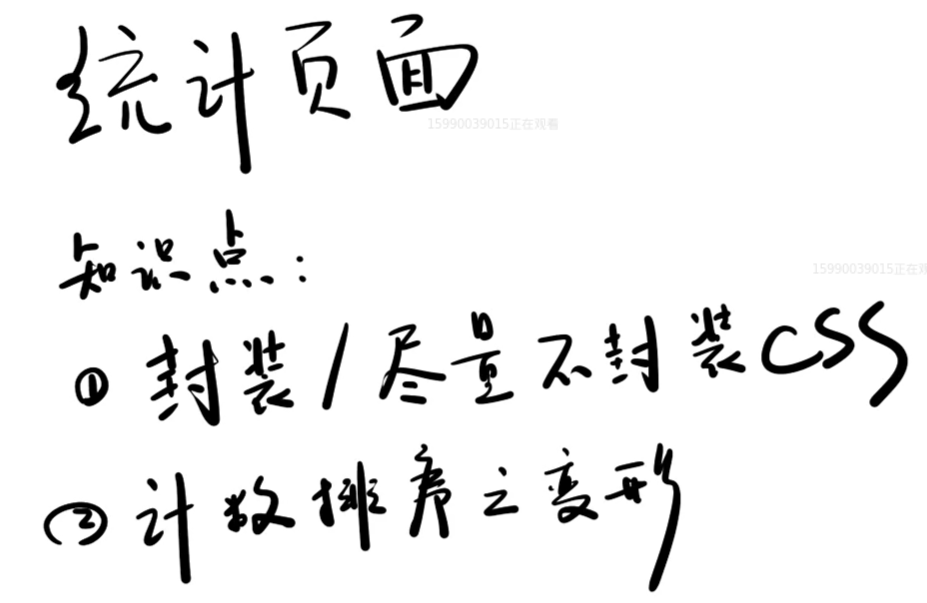 统计页面
15990039015正在观看
知识点：
15990039015正在观
①封装/尽量不封装CSS
②计数排序之变形